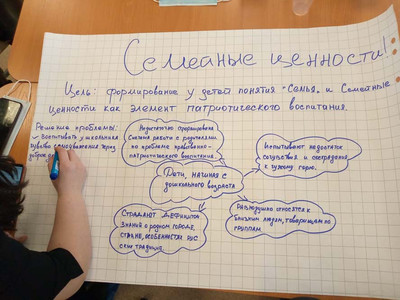 Семейные ценности!
Цель: формирование у детей понятия "Семья" и Семейные
ценности как элемент патриотического
воспитания.
Решение проблемы:
воспитывать у школьников
чувства через
Недостаточно сформирована
система работы с родителями
по проблеме нравственно-
патриотического воспитания.
Испытывают недостаток
сочувствия и сострадания
к чужому горю.
Дети, начиная с
дошкольного возраста
Страдают дефицитом
знаний о родном городе,
стране, особенностях рус
ских традиций.
Равнодушно относятся к
близким людям, товарищам по
группам